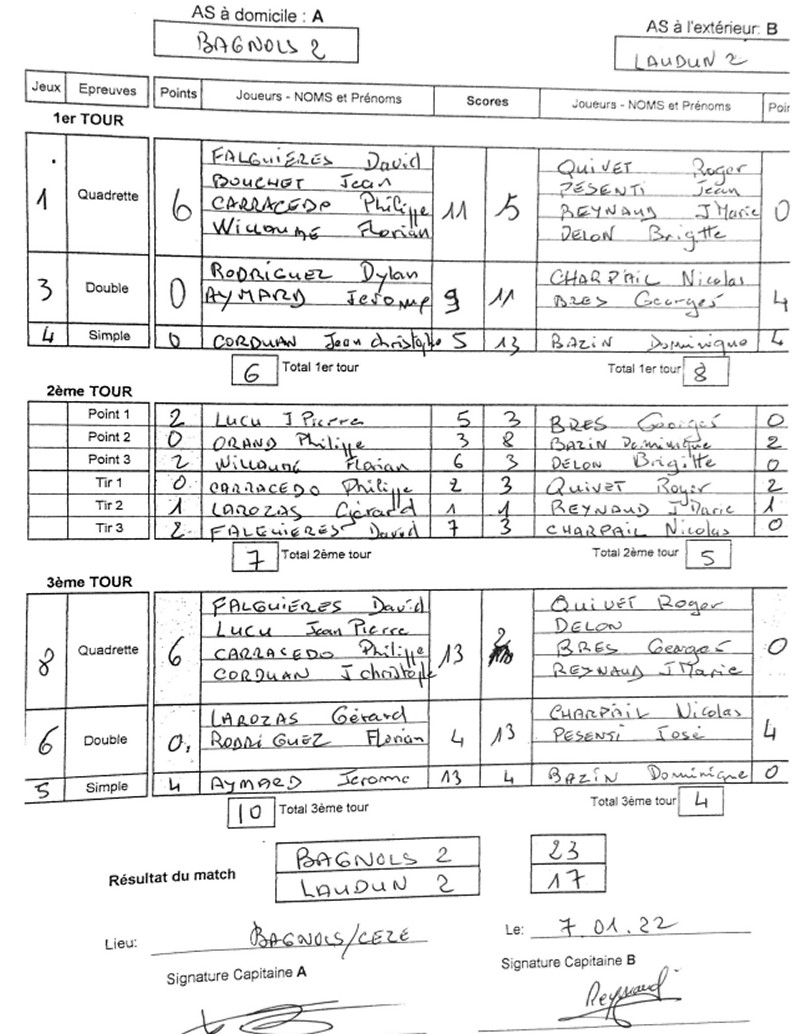 AS à domicile : A
BAGNOLS 2
AS à l'extérieur: B
LAUDUN 2
Jeux Epreuves Points Joueurs - NOMS et Prénoms Scores Joueurs - NOMS et Prénoms Poin
1er TOUR
1 Quadrette 6 11 5 0
FALGUIÈRES David QUIVET Roger
BOUCHET Jean PESENTI Jean
CARRACEDO Philippe REYNAUD JMarie
WILLAUMÉ Florian DELON Brigitte
3 Double 0 9 11 4
RODRIGUEZ Dylan CHARPAIL Nicolas
AYMARD Jerome BRES Georges
4 Simple 0 CORDUAN Jean christophe 5 13 BAZIN Dominique 4
6 Total 1er tour Total 1er tour 8
2ème TOUR
Point 1 2 LUCU J Pierre 5 3 BRES Georges 0
Point 2 0 ORAND Philippe 3 8 BAZIN Dominique 2
Point 3 2 WILLAUMÉ Florian 6 3 DELON Brigitte 0
Tir 1 0 CARRACEDO Philippe 2 3 QUIVET Roger 2
Tir 2 1 LAROZAS Gérard 1 1 REYNAUD JMarie 1
Tir 3 2 FALGUIERES David 7 3 CHARPAIL Nicolas 0
7 Total 2ème tour Total 2ème tour 5
3ème TOUR
8 Quadrette 6 13 2 0
FALGUIERES David QUIVET Roger
LUCU Jean Pierre DELON
CARRACEDO Philippe BRES Georges
CORDUAN J christophe REYNAUD JMarie
6 Double 0 4 13 4
LAROZAS Gérard CHARPAIL Nicolas
RODRIGUEZ Florian PESENTI José
5 Simple 4 AYMARD Jerome 13 4 BAZIN Dominique 0
10 Total 3ème tour Total 3ème tour 4
Résultat du match
BAGNOLS 2 23
LAUDUN 2 17
Lieu: BAGNOLS/CEZE Le: 7.01.22
Signature Capitaine A Signature Capitaine B
Reynaud